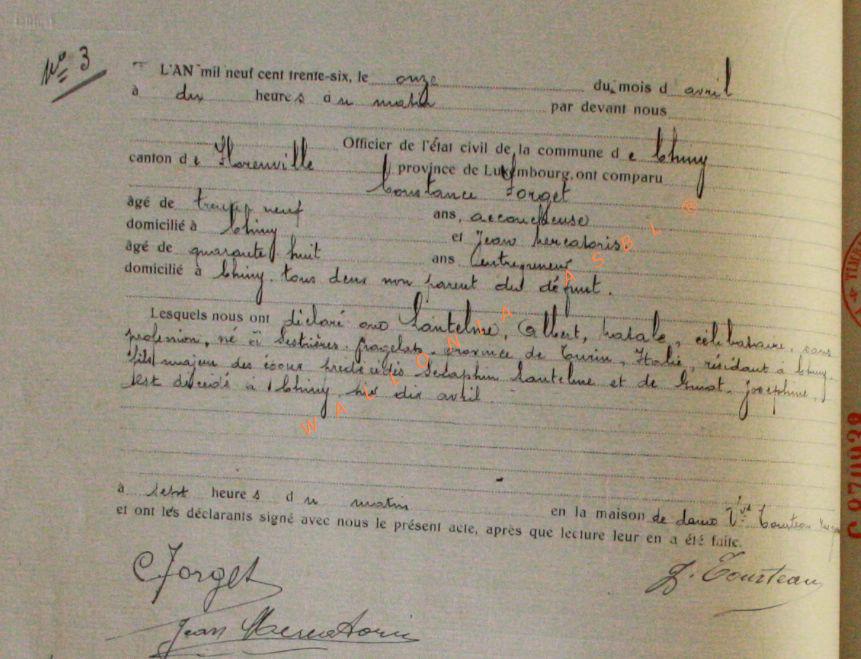 N° 3
L'AN mil neuf cent trente-six, le onze du mois d avril
à dix heures du matin par devant nous
Officier de l'état civil de la commune d e Chiny
canton d e Florenville province de Luxembourg, ont comparu
Constance Forget
âgé de trente neuf ans, accoucheuse
domicilié à Chiny et Jean Mercatoris
âgé de quarante huit ans entrepreneur
domicilié à Chiny, tous deux non parent du défunt.
Lesquels nous ont déclaré que Lantelme, Albert, Natale, célibataire, sans
profession, né à Sestrières-Pragelato, province de Turin, Italie, résidant à Chiny,
fils majeur des époux prédécédés Séraphin Lantelme et de Joséphine,
est décédé à Chiny, hier dix avril
à sept heures du matin en la maison de dame Vve Tourteau
et ont les déclarants signé avec nous le présent acte, après que lecture leur en a été faite.
C Forget
J. Tourteau
Jean Mercatoris
WALLONIA ASBL ®